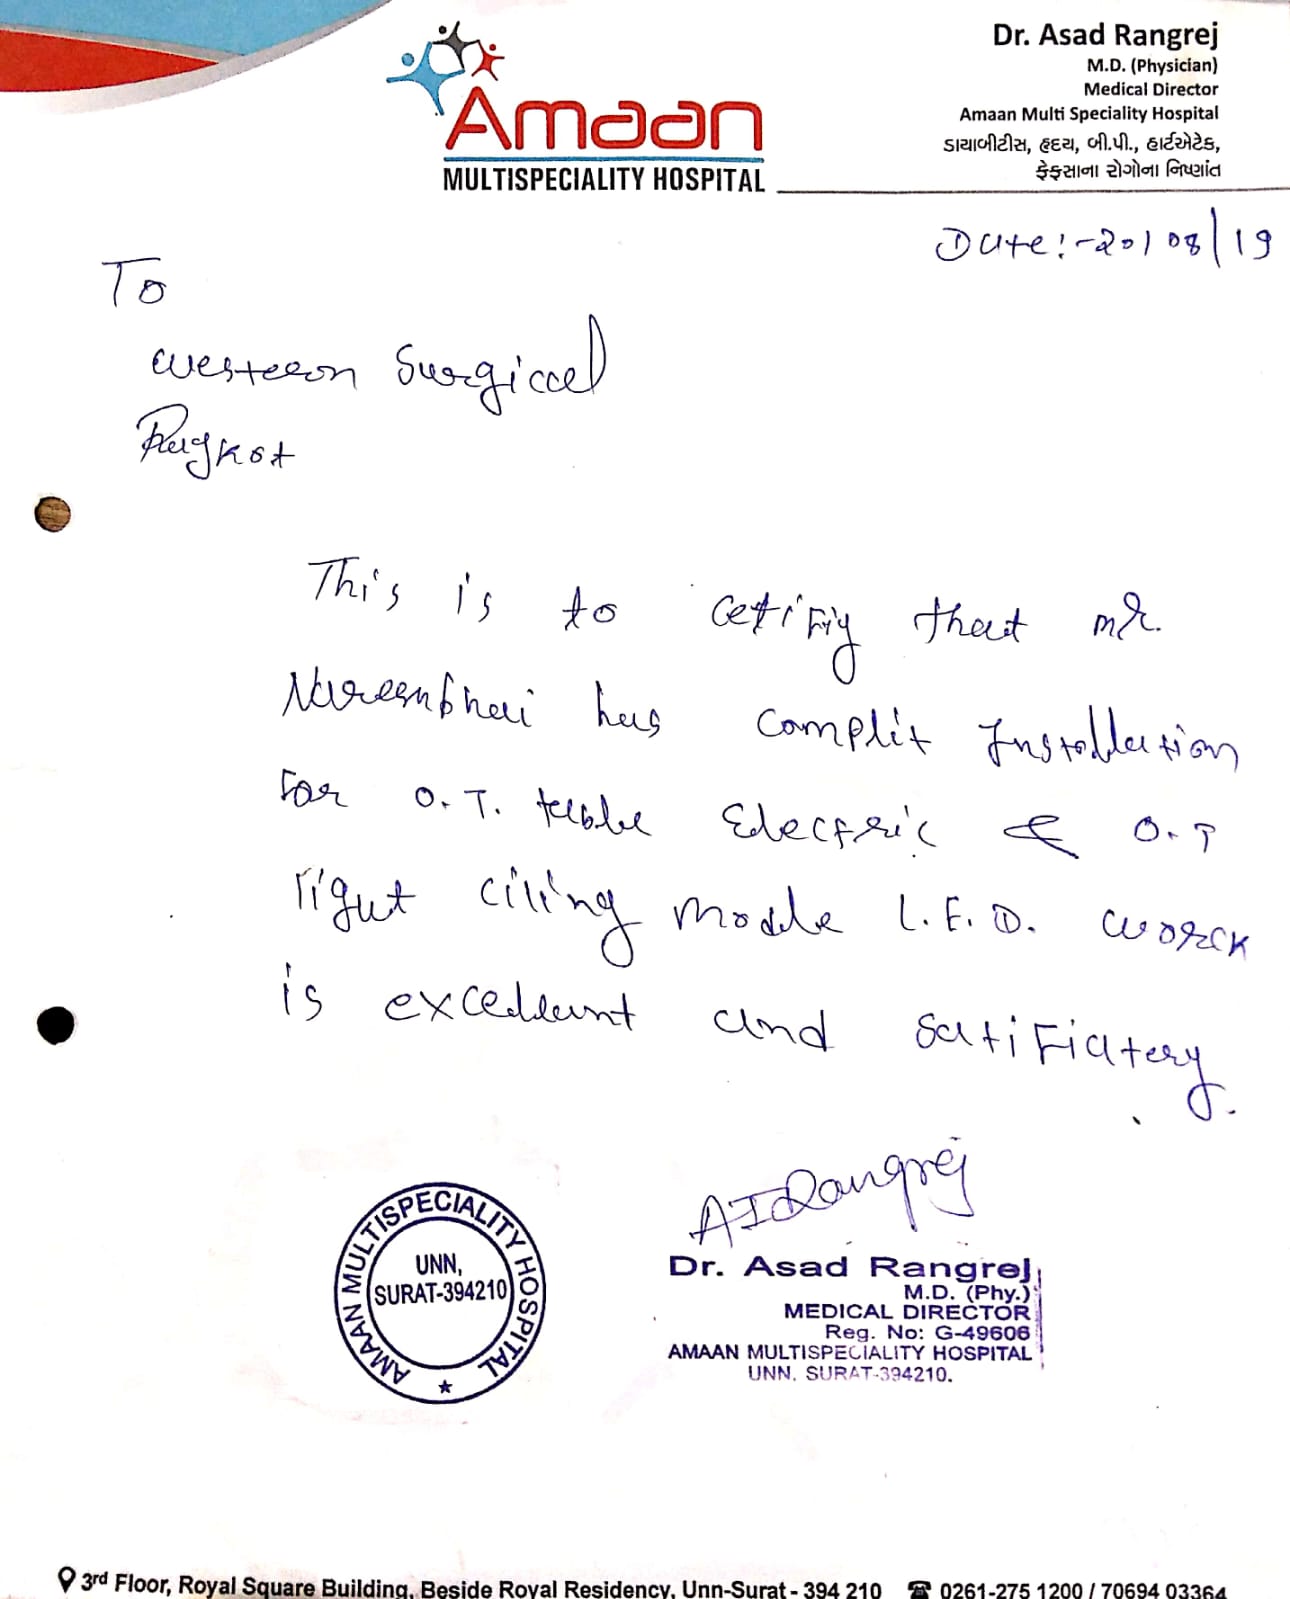 Amaan
MULTISPECIALITY HOSPITAL
Dr. Asad Rangrej
M.D. (Physician)
Medical Director
Amaan Multi Speciality Hospital
ડાયાબીટીસ, હૃદય, બી.પી., હાર્ટએટેક,
ફેફસાના રોગોના નિષ્ણાંત
Date:-20/08/19
To
Westeron Surgical
Rajkot
This is to cetifiy that mr.
Nareenbhai has complit Installation
for O.T. table Electric & O.T
light ciling modle L.E.D. worck
is excellant and satifiatery.
AIRangrej
AMAAN MULTISPECIALITY HOSPITAL
UNN,
SURAT-394210
Dr. Asad Rangrej
M.D. (Phy.)
MEDICAL DIRECTOR
Reg. No: G-49606
AMAAN MULTISPECIALITY HOSPITAL
UNN. SURAT-394210.
3rd Floor, Royal Square Building, Beside Royal Residency, Unn-Surat - 394 210 ☎ 0261-275 1200 / 70694 03364